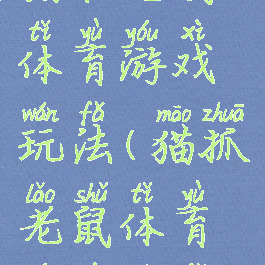 tǐ yù yóu xì
体育游戏
wán fǎ māo zhuā
玩法(猫抓
lǎo shǔ tǐ yù
老鼠体育